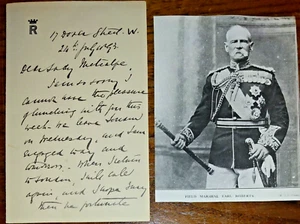 R
17 Dover Street. W.
24th July 1893
Dear Lady Metcalfe,
I am so sorry I
cannot have the pleasure
of lunching with you this
week. We leave London
on Wednesday, and I am
engaged today and
tomorrow. When I return
to London I will call
again and I hope I may
then be fortunate.
FIELD MARSHAL EARL ROBERTS.